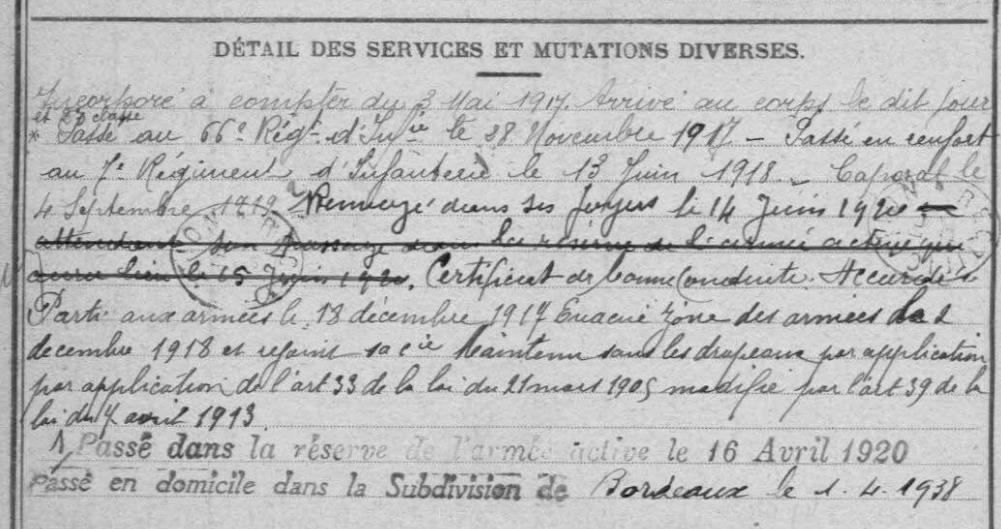 DÉTAIL DES SERVICES ET MUTATIONS DIVERSES.
Incorporé à compter du 3 Mai 1917. Arrivé au corps le dit jour
et 2e classe
* Passé au 66e Régt d'Infie le 28 Novembre 1917 – Passé en renfort
au 7e Régiment d'Infanterie le 13 Juin 1918. – Caporal le
4 Septembre 1919. Renvoyé dans ses foyers le 14 Juin 1920 en
attendant son passage dans la réserve de l'armée active qui
aura lieu le 15 Juin 1920. Certificat de bonne Conduite. Accordé
Parti aux armées le 18 décembre 1917 Evacué zone des armées le 2
decembre 1918 et rejoint sa cie Maintenu sous les drapeaux par application
par application de l'art 33 de la loi du 21 mars 1905 modifié par l'art 39 de la
loi du 7 avril 1913.
Passé dans la réserve de l'armée active le 16 Avril 1920
Passé en domicile dans la Subdivision de Bordeaux le 1.4.1938